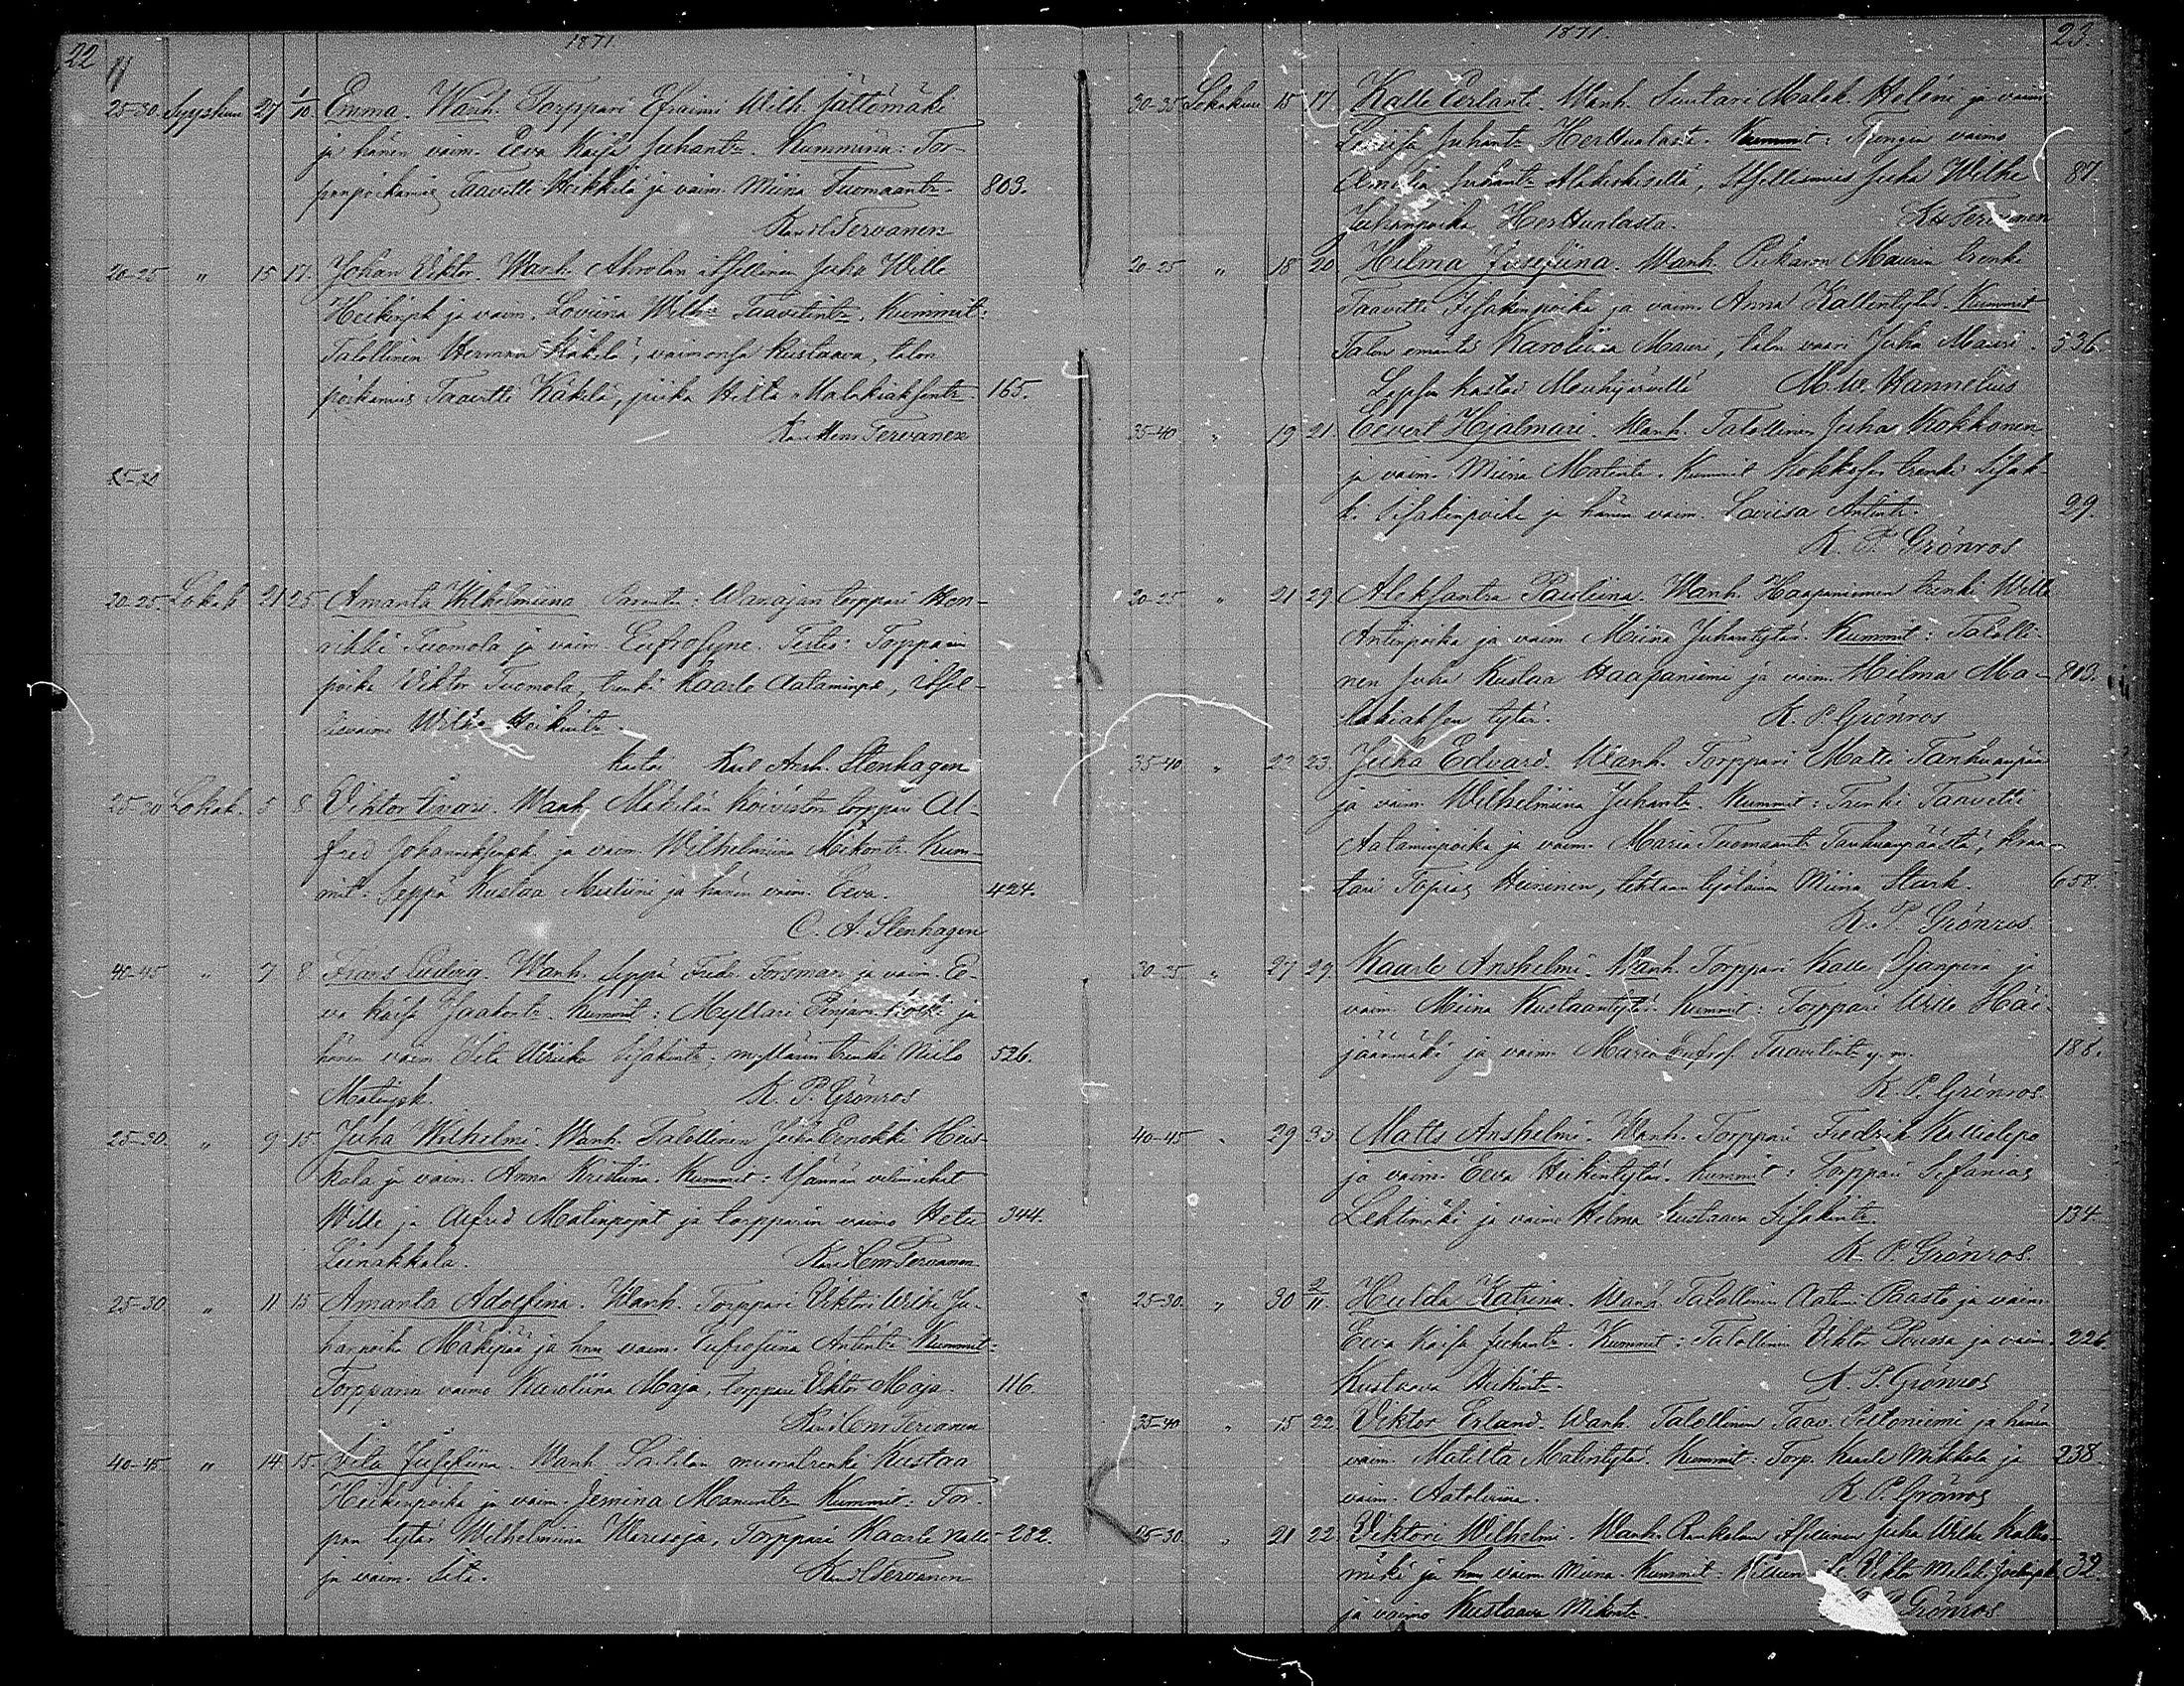 22
1871
11
25-30. Syyskuu 27 1/10. Emma. Wanh. Torppari Efraimi Wilh. Jättömäki
ja hänen vaim. Eeva Kaisa Juhantr. Kummina: Tor-
panpoikamies Taavetti Heikkilä ja vaim. Miina Tuomaantr. 803.
Karl Tervanen
20-25 " 15 17. Johan Viktor. Wanh. Ahvolan itsellinen Juha Wille
Heikinpk ja vaim. Loviina Wilh:a Taavetintr. Kummit:
Talollinen Herman Käkelä, vaimonsa Kustaava, talon
poikamies Taavetti Käkelä, piika Hilta Malakiaksentr. 165.
Karl Henr Tervanen
25-30
20-25. Lokak. 21 25 Amanta Wilhelmiina Wanh: torppari Hen-
rikki Tuomola ja vaim. Eufrosyne. Torpparin
poika Viktor Tuomola, trenki Kaarlo Aataminpk, itsel-
lisvaimo Heikintr
kastoi Karl Arsh. Stenhagen
25-30 Lokak. 5 8. Viktor Einari. Wanh. Mäkelän Koiviston torppari Al-
fred Johanneksenpk. ja vaim. Wilhelmiina Mikontr. Kum-
mit: Seppä Kustaa ja hänen vaim. Eeva. 424.
C. A. Stenhagen
40-45 " 7 8. Frans Ludvig. Wanh. Seppä Fredr. Forsman ja vaim. Ee-
va Kaisa Jaakontr. Kummit: Myllari Penjam. ja
hänen vaim. Ulriika Iisakintr, myllärin trenki Niilo 526.
Matinpk. K. P. Grönros
25-30. " 9. 15. Juha Wilhelmi. Wanh. Talollinen Juha Eenokki Heis-
kala ja vaim. Anna Kristiina. Kummit: Isännän velimiehet
Wille ja Alfred Matinpojat ja torpparin vaimo Heta 344.
Leinakkala. Karl Hen Tervanen
25-30 " 11. 15 Amanta Adolfina. Wanh. Torppari Viktori Wilhe Ju-
hanpoika Mäkipää ja hnn vaim. Eufrosiina Antintr Kummit:
Torpparin vaimo Karoliina Maja, torppari Viktor Maja. 116.
Karl Hen Tervanen
40-45 " 14. 15. Iita Josefiina. Wanh. muonatrenki Kustaa
Heikinpoika ja vaim. Jemina Mananntr. Kummit: Tor-
pan tytär Wilhelmiina Warisoja, Torppari Kaarlo 282.
ja vaim. Iita. Karl Tervanen
1871.
23.
30-35 Lokakuu 15 17. Kalle Eerlanti. Wanh. Suutari Malak. Heleni ja vaim.
Loviisa Juhantr. Herttualasta. Kummit: Rengin vaimo
Amalia Juhantr. Alakoskisella, Itsellismies Juha Wilhe 87
Juhanpoika Herttualasta. K H Tervanen
20-25 " 18 20. Hilma Josefiina. Wanh. Maurin trenki
Taavetti Iisakinpoika ja vaim. Anna Kallentytär. Kummit
Talon emäntä Karoliina Mauri, talon vaari Juha Mauri. 536.
Lapsen kastoi Mouhijärvellä M. W. Hannelius
35-40 " 19 21. Eevert Hjalmari. Wanh. Talollinen Juha Kokkonen
ja vaim. Miina Matintr. Kummit Kokkosen trenki Iisak-
ki Iisakinpoika ja hänen vaim. Loviisa Antintr. 29.
K. P. Grönros
20-25 " 21 29. Aleksantra Pauliina. Wanh. Haapaniemen trenki Wille
Antinpoika ja vaim. Miina Juhantytär. Kummit: Talolli-
nen Juha Kustaa Haapaniemi ja vaim. Hilma Ma- 803.
lakiaksen tytär. K. P. Grönros
35-40 " 22 23. Juha Edvard. Wanh. Torppari Matti Tanhuanpää
ja vaim. Wilhelmiina Juhantr. Kummit: Trenki Taavetti
Aataminpoika ja vaim. Maria Tuomaantr Tanhuanpäästä, kraa-
tari Topias Heininen, tehtaan työläinen Miina Stark. 658.
K. P. Grönros
30-35 " 27 29. Kaarlo Anshelmi. Wanh. Torppari Kalle ja
vaim. Miina Kustaantytär. Kummit: Torppari Wille Häi-
jäänmäki ja vaim. Maria Eufros. Taavetintr y. m. 188.
K. P. Grönros.
40-45 " 29 33 Matts Anshelmi. Wanh. Torppari Fredrik Kalliolepo
ja vaim. Eeva Heikintytär. Kummit: Torppari Sefanias
Lehtimäki ja vaimo Helma Kustaava Iisakintr. 134.
K. P. Grönros.
25-30. " 30 2/11. Hulda Katrina. Wanh. Talollinen Aatam. Paasto ja vaim.
Eeva Kaisa Juhantr. Kummit: Talollinen Viktor Poussa ja vaim. 226.
Kustaava Heikintr. K. P. Grönros
35-40 " 15 22. Viktor Erland. Wanh. Talollinen Taav. Siltoniemi ja hänen
vaim. Matilta Matintytär. Kummit: Torp. Kaarle Mikkola ja 238.
vaim. Aatolviina. K. P. Grönros
25-30. " 21 22. Viktori Wilhelmi. Wanh. itsellinen Juha Wilhe Kallio-
mäki ja hnn vaim Miina. Kummit: Viktor Malak. 32.
ja vaimo Kustaava Mikontr. K. P. Grönros